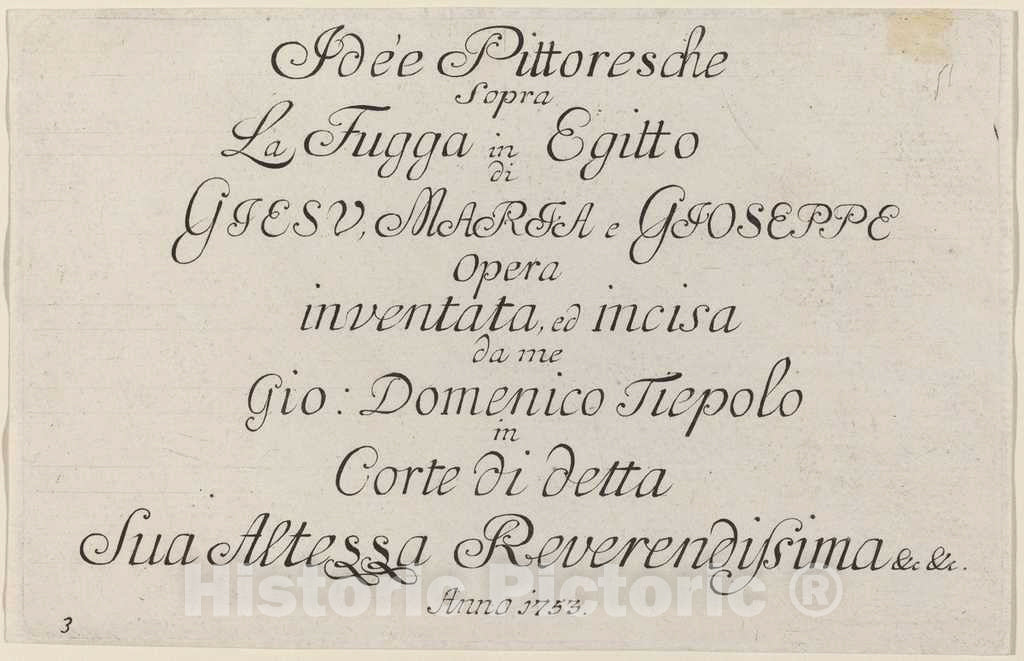 Idée Pittoresche
Sopra
La Fugga in Egitto
di
GIESV, MARIA e GIOSEPPE
Opera
inventata, ed incisa
da me
Gio: Domenico Tiepolo
in
Corte di detta
Sua Altessa Reverendissima &c &c.
Anno 1753.
3
Historic Pictoric ®